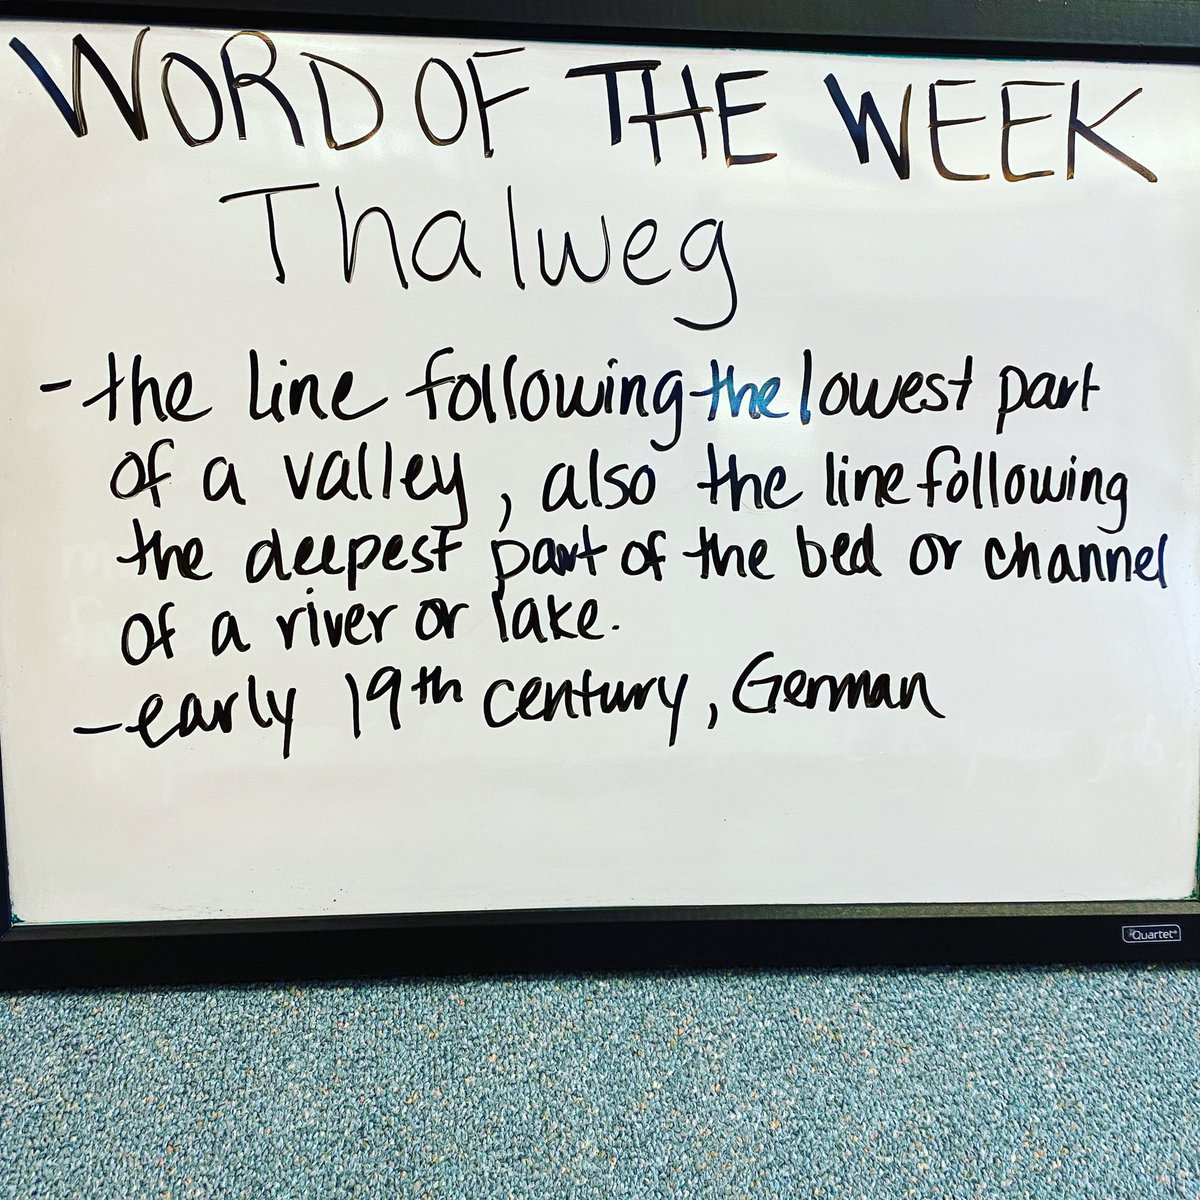 WORD OF THE WEEK
Thalweg
- the line following the lowest part
of a valley, also the line following
the deepest part of the bed or channel
of a river or lake.
- early 19th century, German
Quartet